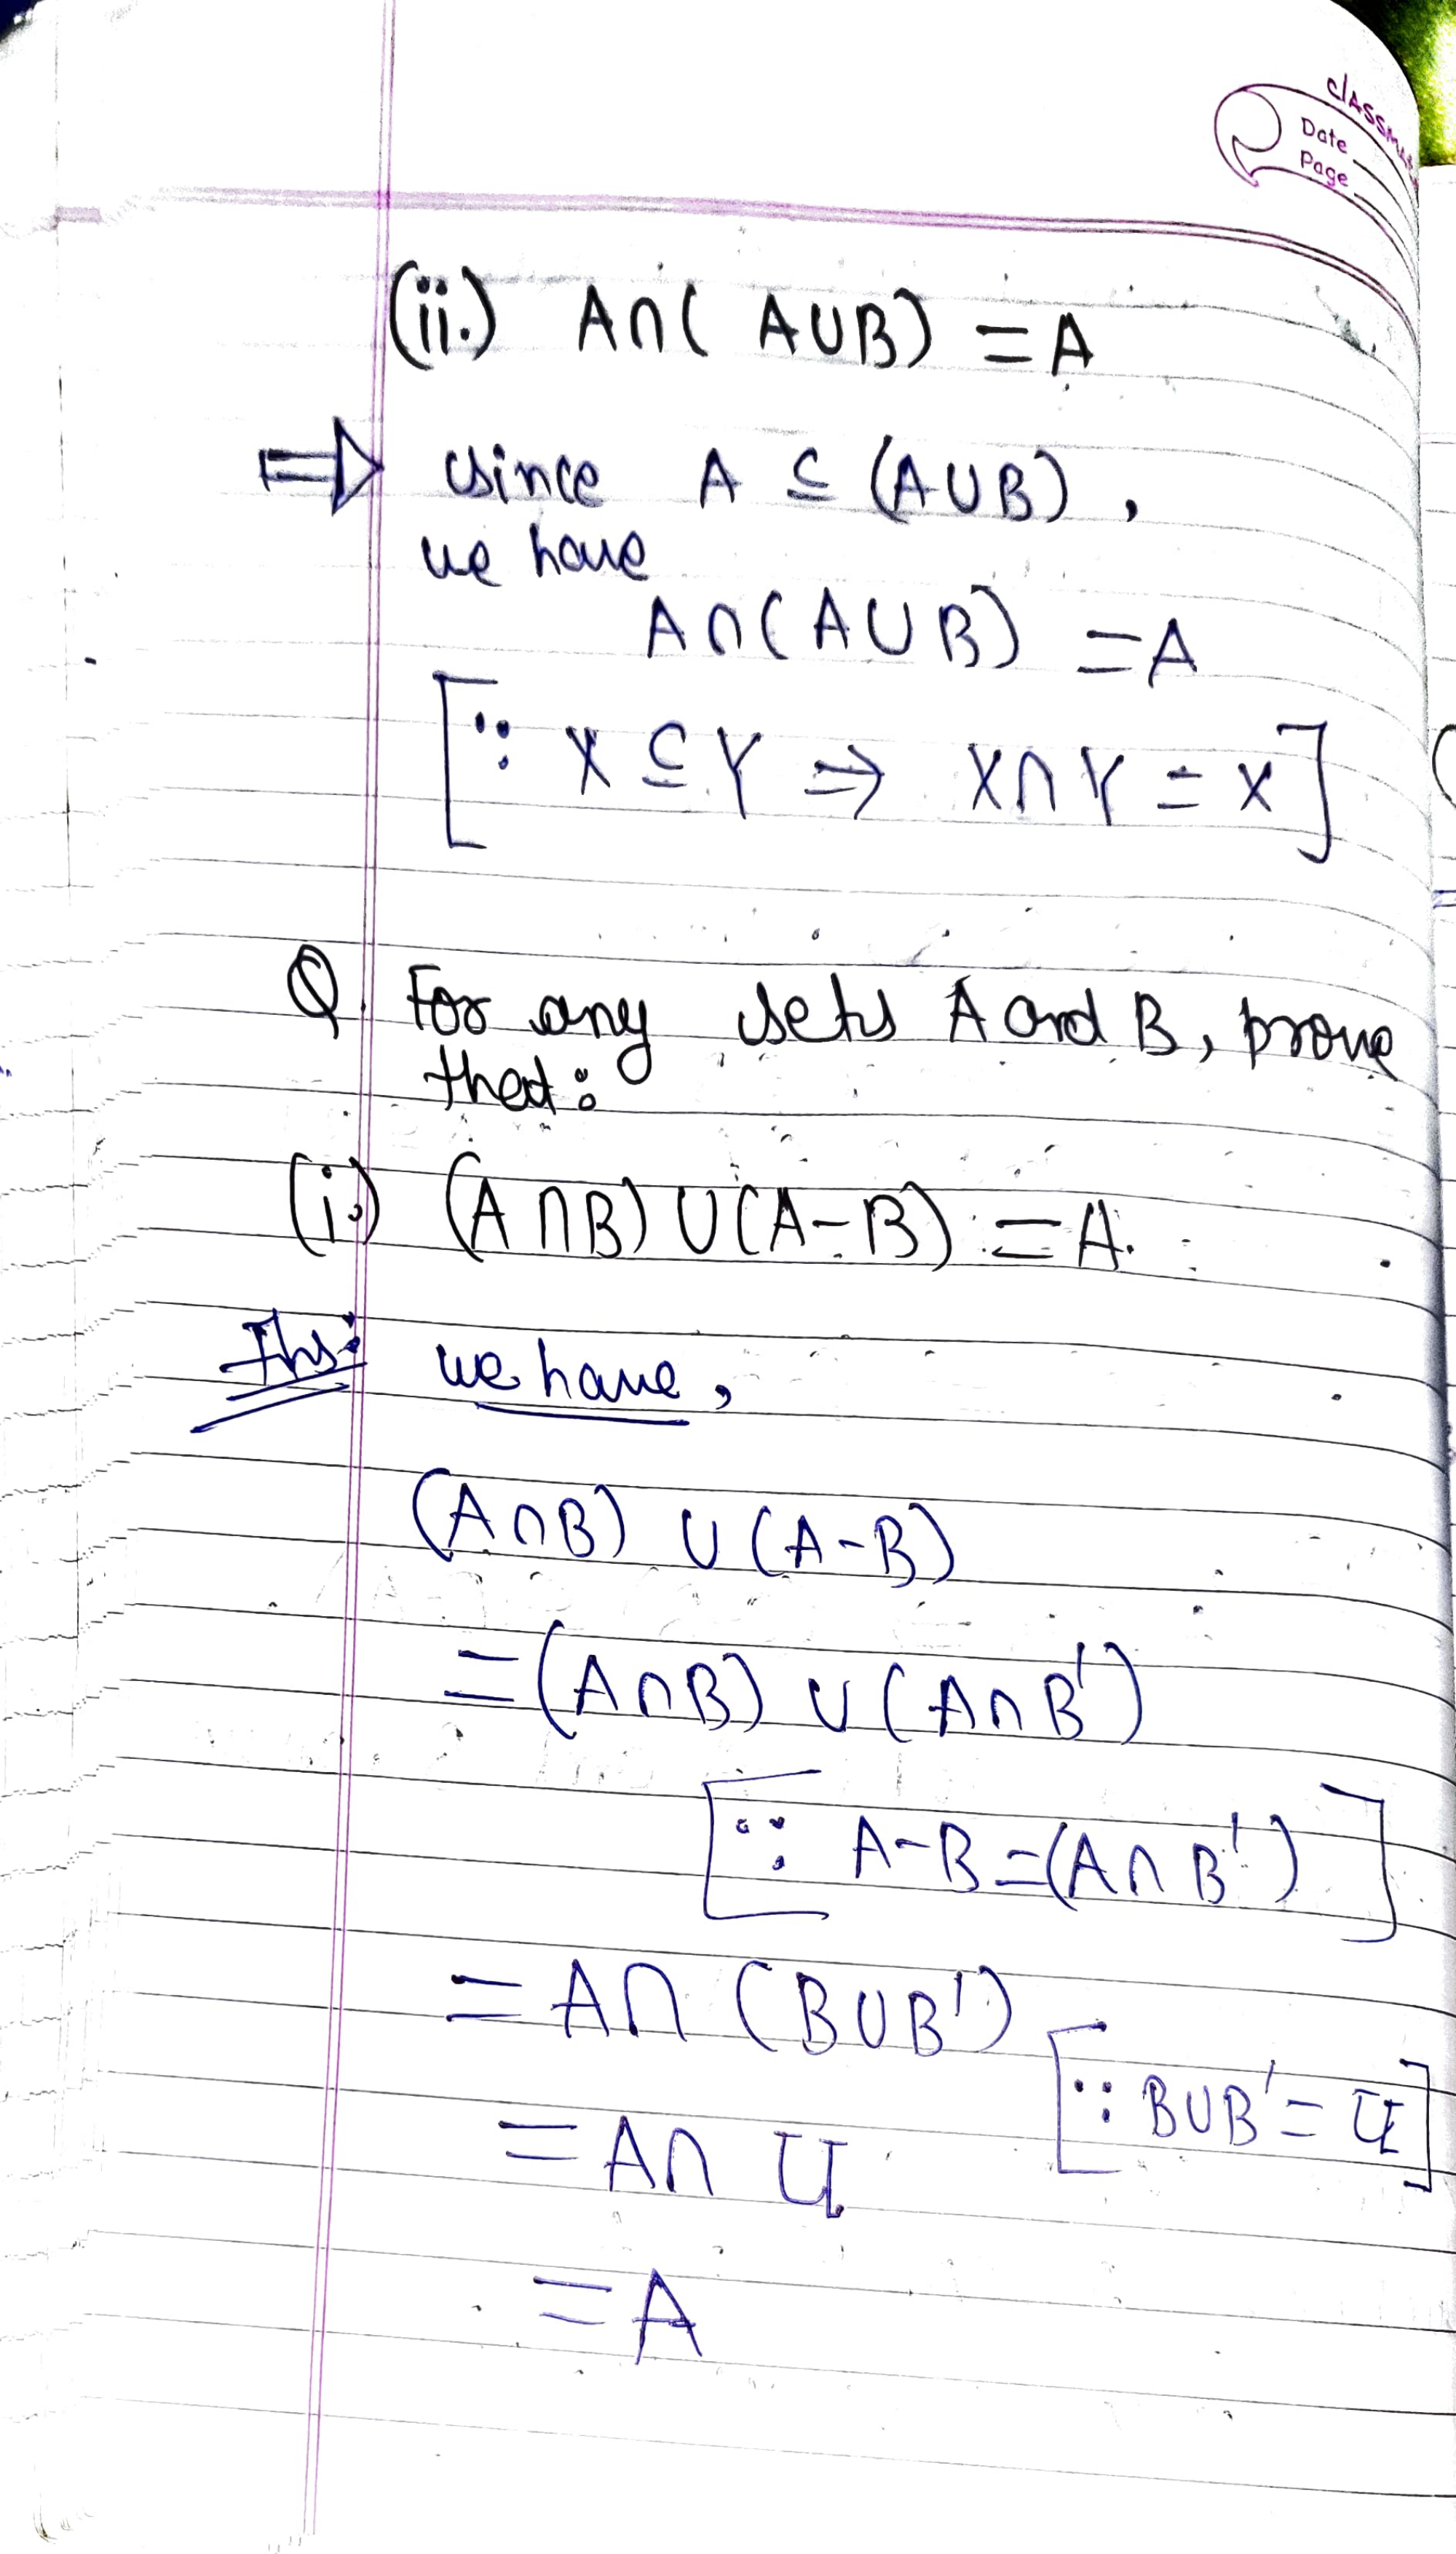 classmate
Date
Page
(ii.) A∩( A∪B) = A
⇒ since A ⊆ (A∪B) ,
we have
A∩(A∪B) = A
[∵ X ⊆ Y ⇒ X∩Y = X]
Q. For any sets A and B, prove
that:
(i.) (A∩B)∪(A-B) = A.
Ans:- we have,
(A∩B) ∪ (A-B)
= (A∩B) ∪ (A∩B')
[∵ A-B = (A∩B')]
= A∩ (B∪B')
[∵ B∪B' = U]
= A∩ U
= A